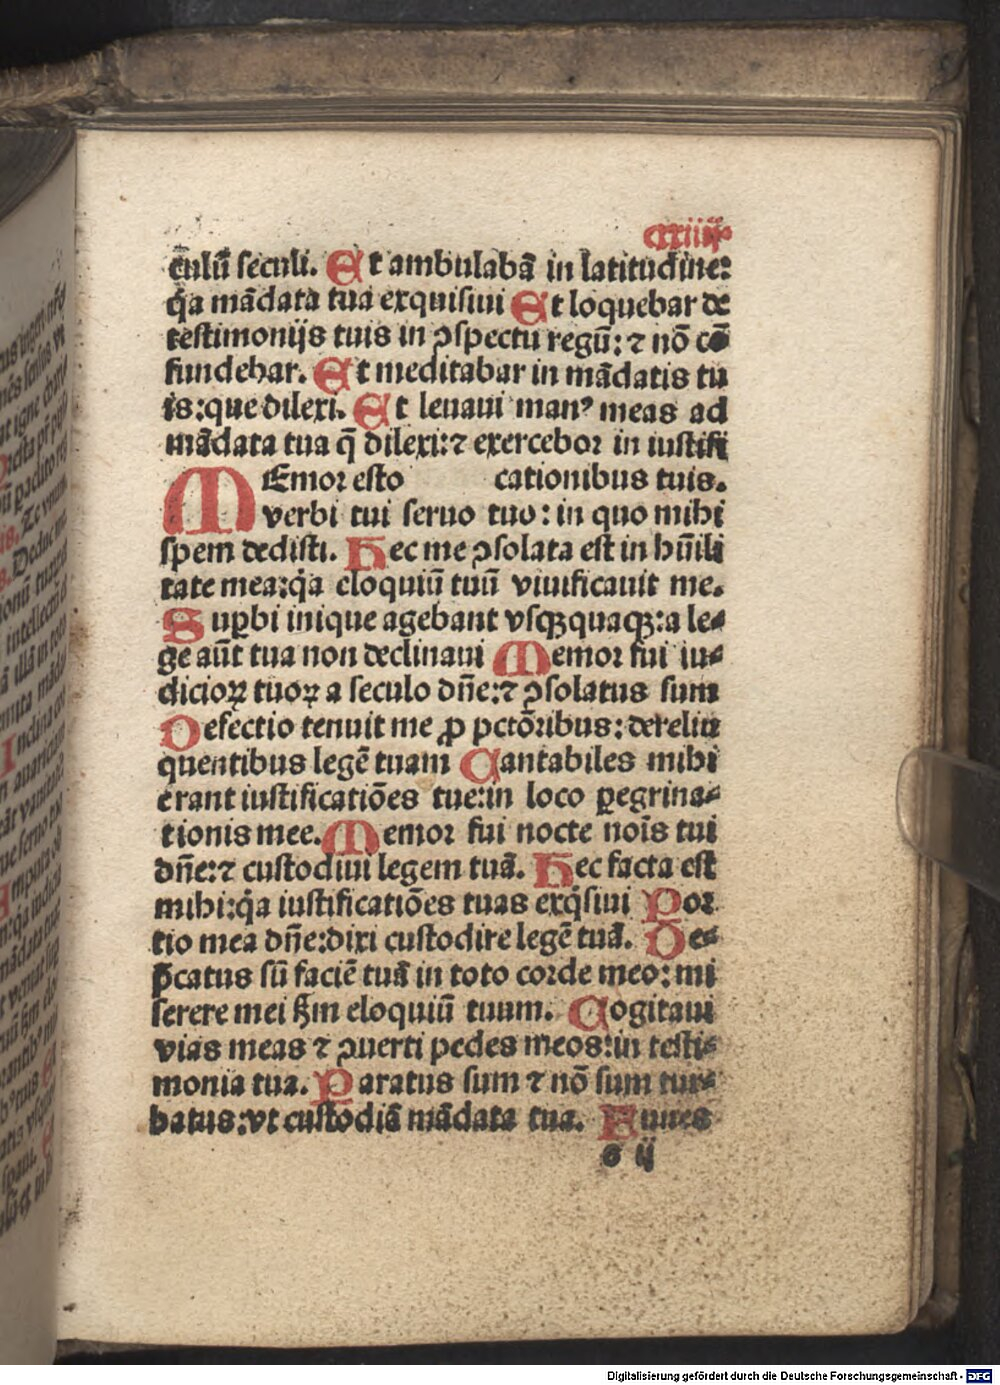 cxiiij
culū seculi. Et ambulabā in latitudine:
q̇a mādata tua exquisiui Et loquebar de
testimonijs tuis in ꝯspectu regū: ⁊ nō cō
fundebar. Et meditabar in mādatis tu
is:que dilexi. Et leuaui manꝰ meas ad
mādata tua q̄ dilexi:⁊ exercebor in iustifi
MEmor esto cationibus tuis.
verbi tui seruo tuo: in quo mihi
spem dedisti. Hec me ꝯsolata est in hūili
tate mea:q̇a eloquiū tuū viuificauit me.
Supbi inique agebant vsqꝫquaqꝫ:a le⸗
ge aūt tua non declinaui Memor fui iu⸗
dicioꝝ tuoꝝ a seculo dn̄e:⁊ ꝯsolatus sum
Defectio tenuit me ꝓ pctōribus: derelin
quentibus legē tuam Cantabiles mihi
erant iustificatiōes tue:in loco ꝑegrina⸗
tionis mee. Memor fui nocte nois̄ tui
dn̄e:⁊ custodiui legem tuā. Hec facta est
mihi:q̇a iustificatiōes tuas exq̇siui Por
tio mea dn̄e:dixi custodire legē tuā. De⸗
p̄catus sū faciē tuā in toto corde meo: mi
serere mei ẜm eloquiū tuum. Cogitaui
vias meas ⁊ ꝯuerti pedes meos:in testi⸗
monia tua. Paratus sum ⁊ nō sum tur⸗
batus:vt custodiā mādata tua. Funes
ij
Digitalisierung gefördert durch die Deutsche Forschungsgemeinschaft - DFG